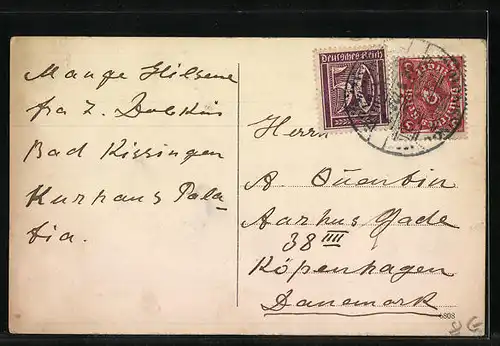 Mange Hilsene
fra Z. Dobkin
Bad Kissingen
Kurhaus Pala-
tia.
Deutsches Reich
Herrn
A Quentin
Aarhus Gade
38 IIII
Köpenhagen
Danemark